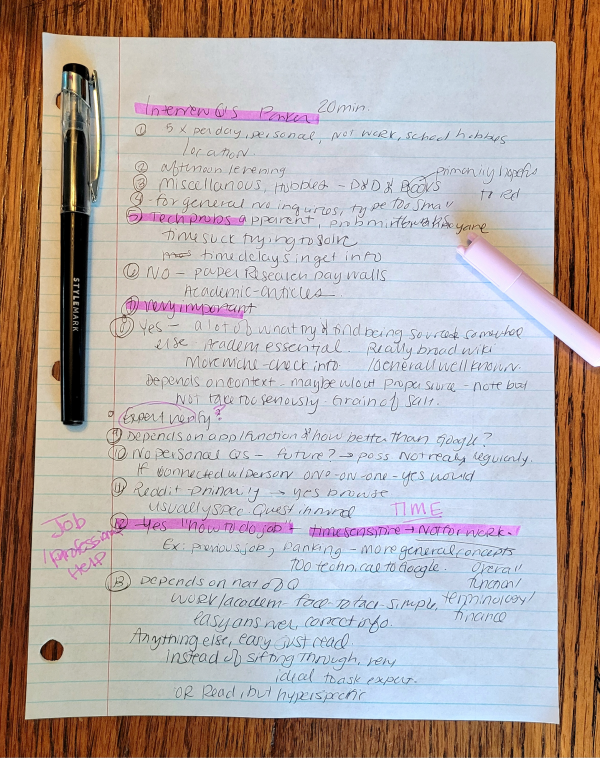 Interview Qs Parker 20 min.
① 5 x per day, personal, Not work, school hobbies
Location
② afternoon/evening
③ Miscellanous, Hobbies - D&D & Books primarily hopefus
④ - for general no inquries, type too small to Rd
⑤ Tech probs apparent, prob min
time suck trying to solve
time delays in get info
⑥ No - paper Research pay walls
Academic-articles
⑦ very important
⑧ Yes - a lot of what try & find being sourced somewhere
else Academ essential. Really broad wiki
More niche - check info / General well known
Depends on context - maybe w/out proper source - note but
Not take too seriously - Grain of salt.
Expert verify?
⑨ Depends on app/function & how better than Google?
⑩ No personal Qs - future? → poss Not really regularly.
If connected w/person one-on-one - yes would
⑪ Reddit - primarily → yes browse
usually spec. Quest in mind
TIME
⑫ - Yes "how to do job" - time sensitive → Not for work.
Job
/professional
Help
Ex: previous job, banking - more general concepts
Too technical to Google. overall
function/
⑬ Depends on nat of Q
work/academ - face-to-face - simple, terminology/
easy answer, correct info. finance
Anything else, easy just read.
instead of sifting through, very
ideal to ask expert.
OR Read, but hyperspecific
STYLEMARK